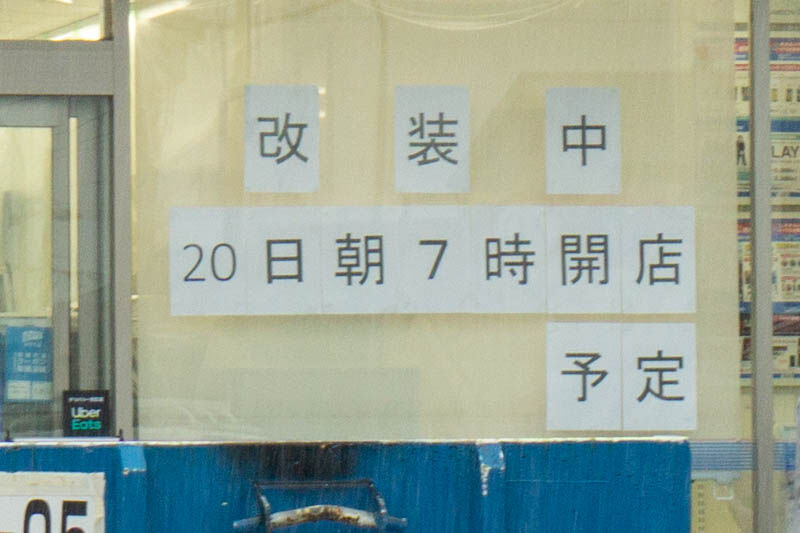 改装中
20日朝7時開店
予定
Uber
Eats
LAY
95